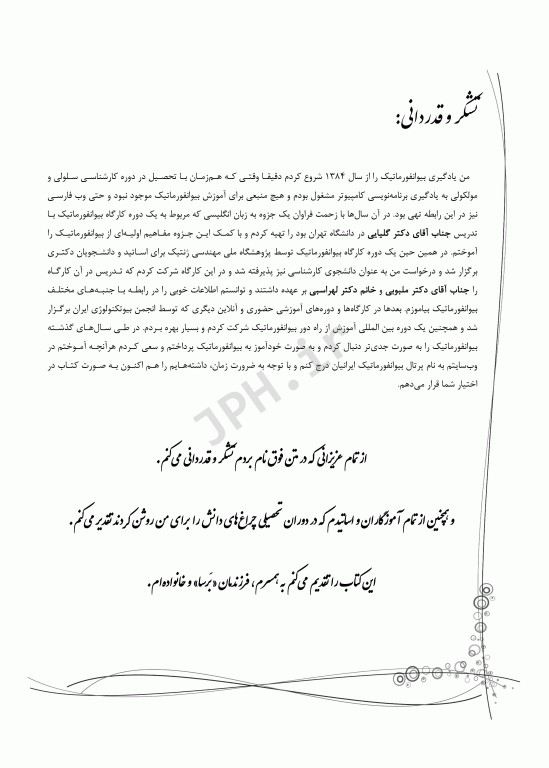 تشکر و قدردانی:
من یادگیری بیوانفورماتیک را از سال ۱۳۸۴ شروع کردم دقیقا وقتی که هم‌زمان با تحصیل در دوره کارشناسی سلولی و
مولکولی به یادگیری برنامه‌نویسی کامپیوتر مشغول بودم و هیچ منبعی برای آموزش بیوانفورماتیک موجود نبود و حتی وب فارسی
نیز در این رابطه تهی بود. در آن سال‌ها با زحمت فراوان یک جزوه به زبان انگلیسی که مربوط به یک دوره کارگاه بیوانفورماتیک با
تدریس جناب آقای دکتر گلیایی در دانشگاه تهران بود را تهیه کردم و با کمک این جزوه مفاهیم اولیه‌ای از بیوانفورماتیک را
آموختم. در همین حین یک دوره کارگاه بیوانفورماتیک توسط پژوهشگاه ملی مهندسی ژنتیک برای اساتید و دانشجویان دکتری
برگزار شد و درخواست من به عنوان دانشجوی کارشناسی نیز پذیرفته شد و در این کارگاه شرکت کردم که تدریس در آن کارگاه
را جناب آقای دکتر ملبوبی و خانم دکتر لهراسبی بر عهده داشتند و توانستم اطلاعات خوبی را در رابطه با جنبه‌های مختلف
بیوانفورماتیک بیاموزم. بعدها در کارگاه‌ها و دوره‌های آموزشی حضوری و آنلاین دیگری که توسط انجمن بیوتکنولوژی ایران برگزار
شد و همچنین یک دوره بین المللی آموزش از راه دور بیوانفورماتیک شرکت کردم و بسیار بهره بردم. در طی سال‌های گذشته
بیوانفورماتیک را به صورت جدی‌تر دنبال کردم و به صورت خودآموز به بیوانفورماتیک پرداختم و سعی کردم هرآنچه آموختم در
وب‌سایتم به نام پرتال بیوانفورماتیک ایرانیان درج کنم و با توجه به ضرورت زمان، داشته‌هایم را هم اکنون به صورت کتاب در
اختیار شما قرار می‌دهم.
JPH.ir
از تمام عزیزانی که در متن فوق نام بردم تشکر و قدردانی می‌کنم.
و همچنین از تمام آموزگاران و اساتیدم که در دوران تحصیلی چراغ‌های دانش را برای من روشن کردند تقدیر می‌کنم.
این کتاب را تقدیم می‌کنم به همسرم، فرزندمان «برسا» و خانواده‌ام.